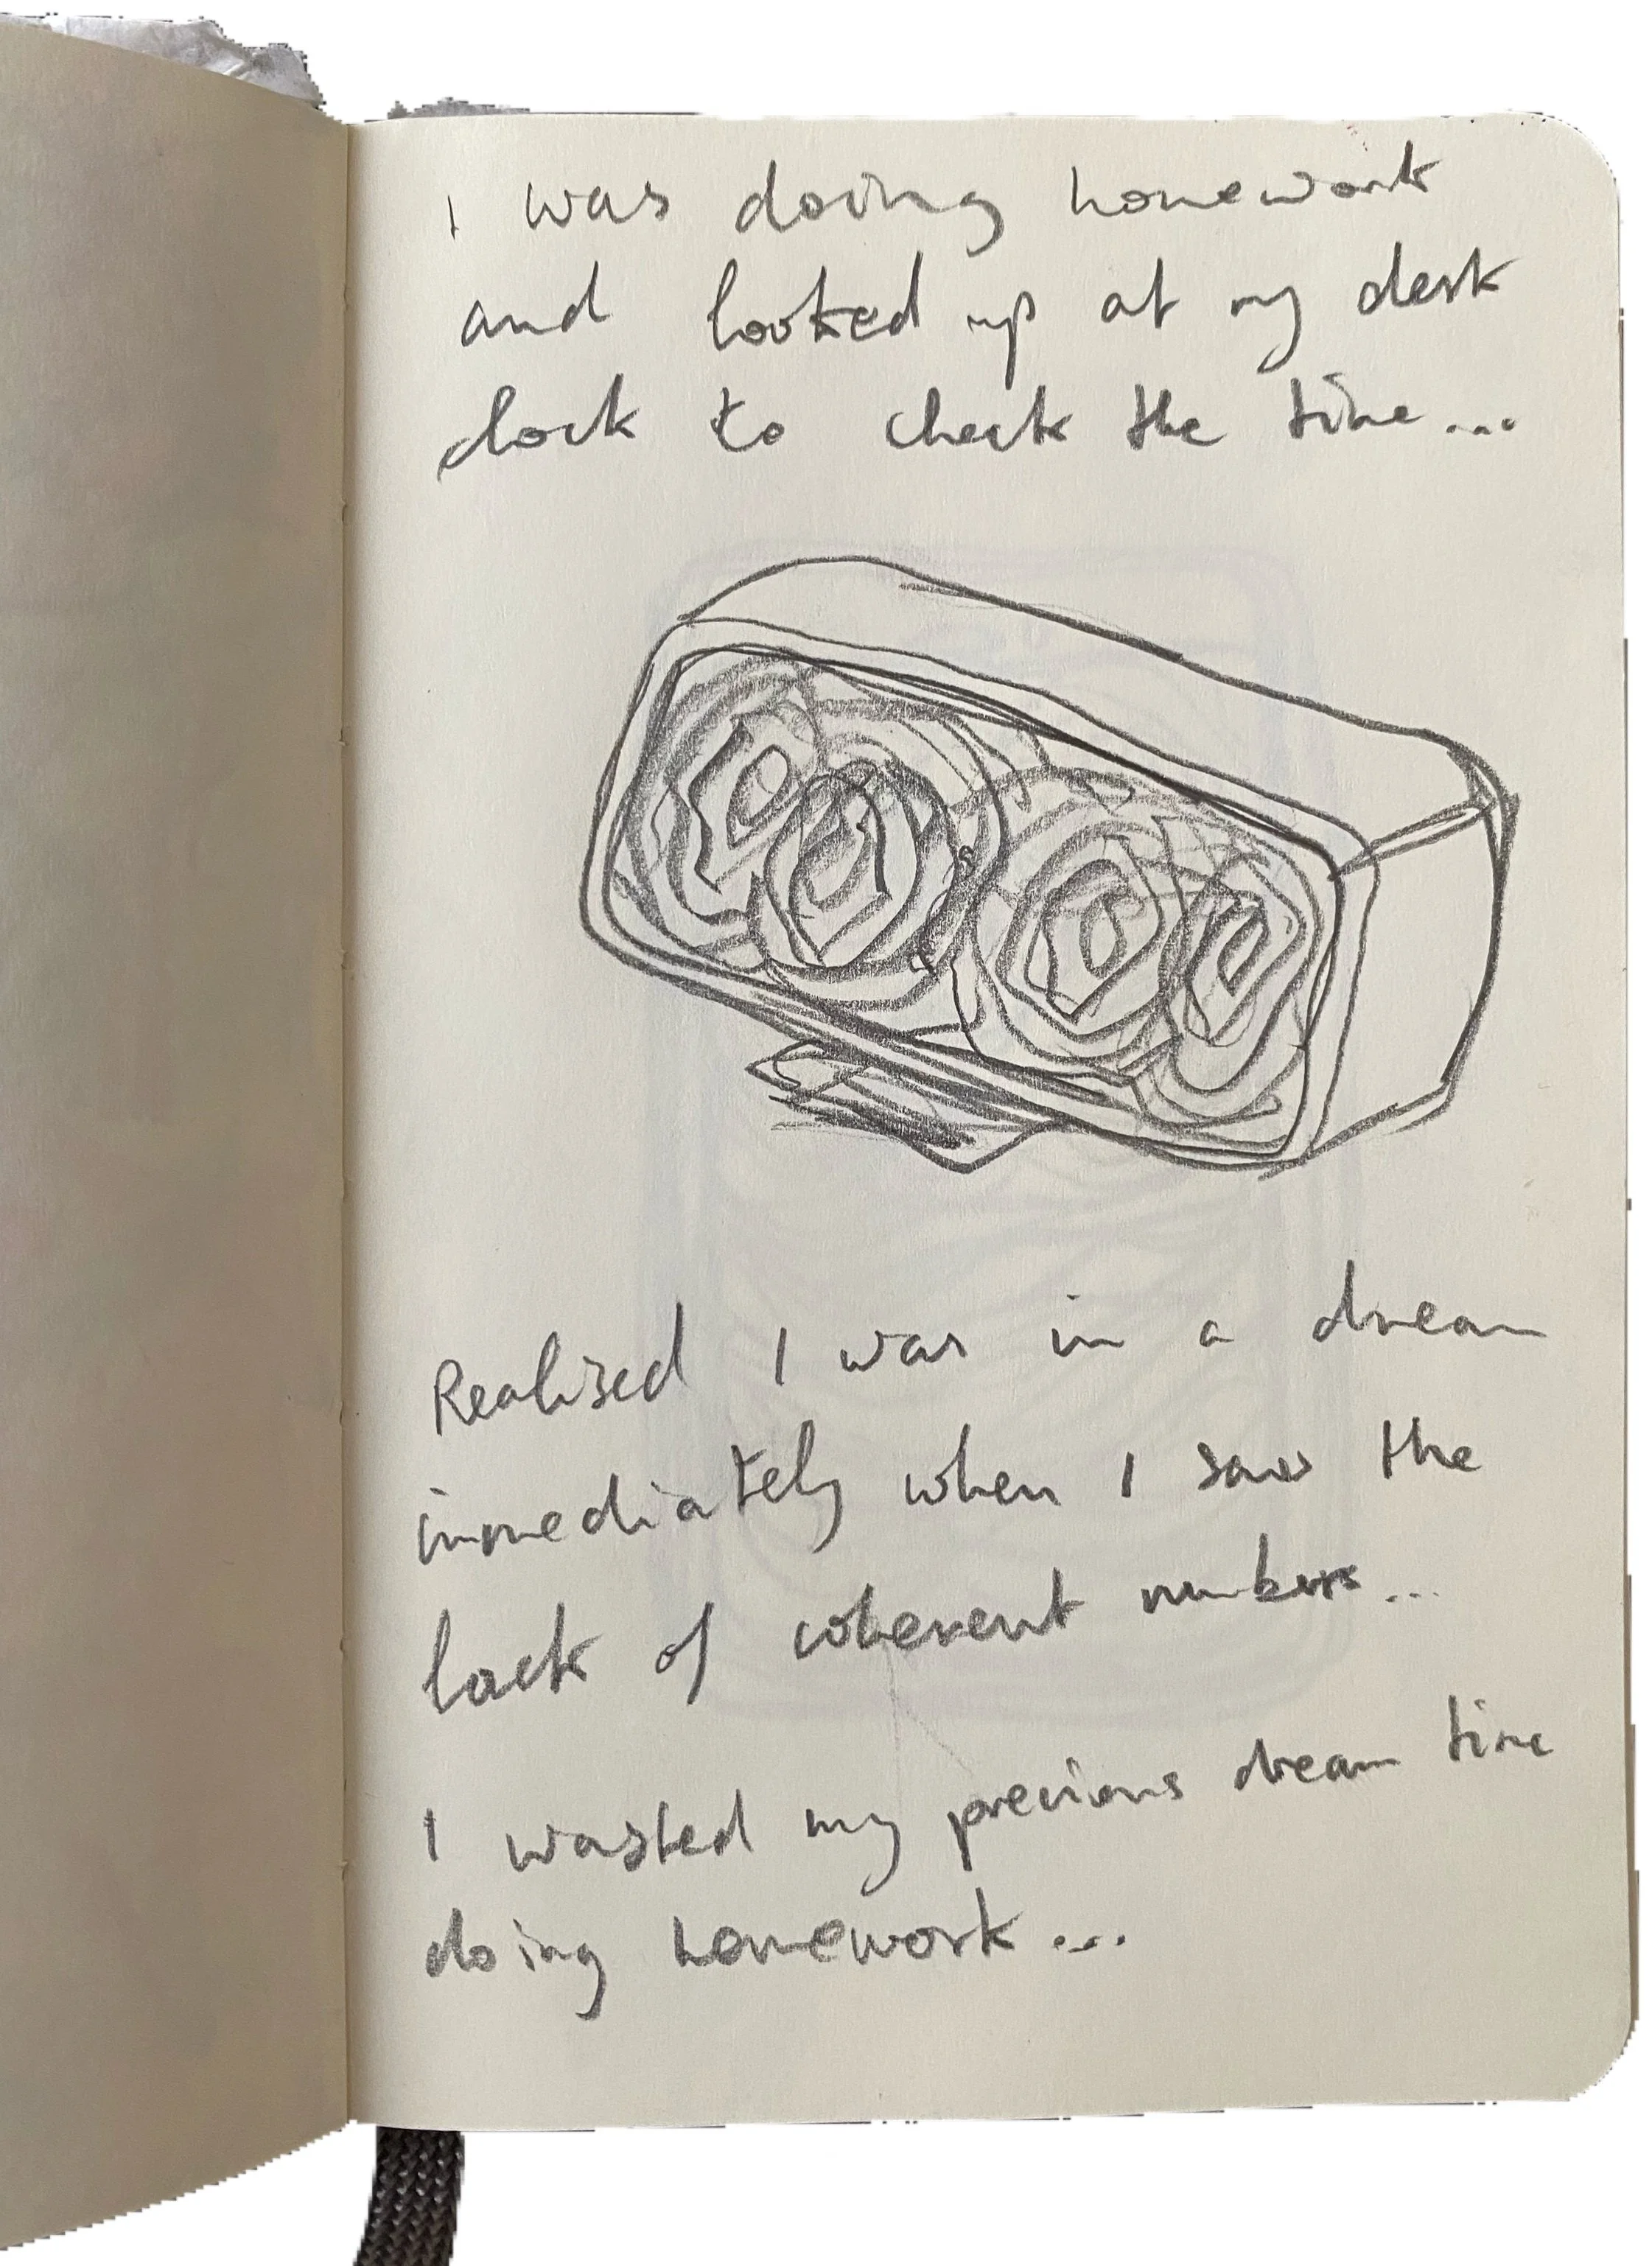 I was doing homework
and looked up at my desk
clock to check the time...
Realised I was in a dream
immediately when I saw the
lack of coherent numbers...
I wasted my precious dream time
doing homework...